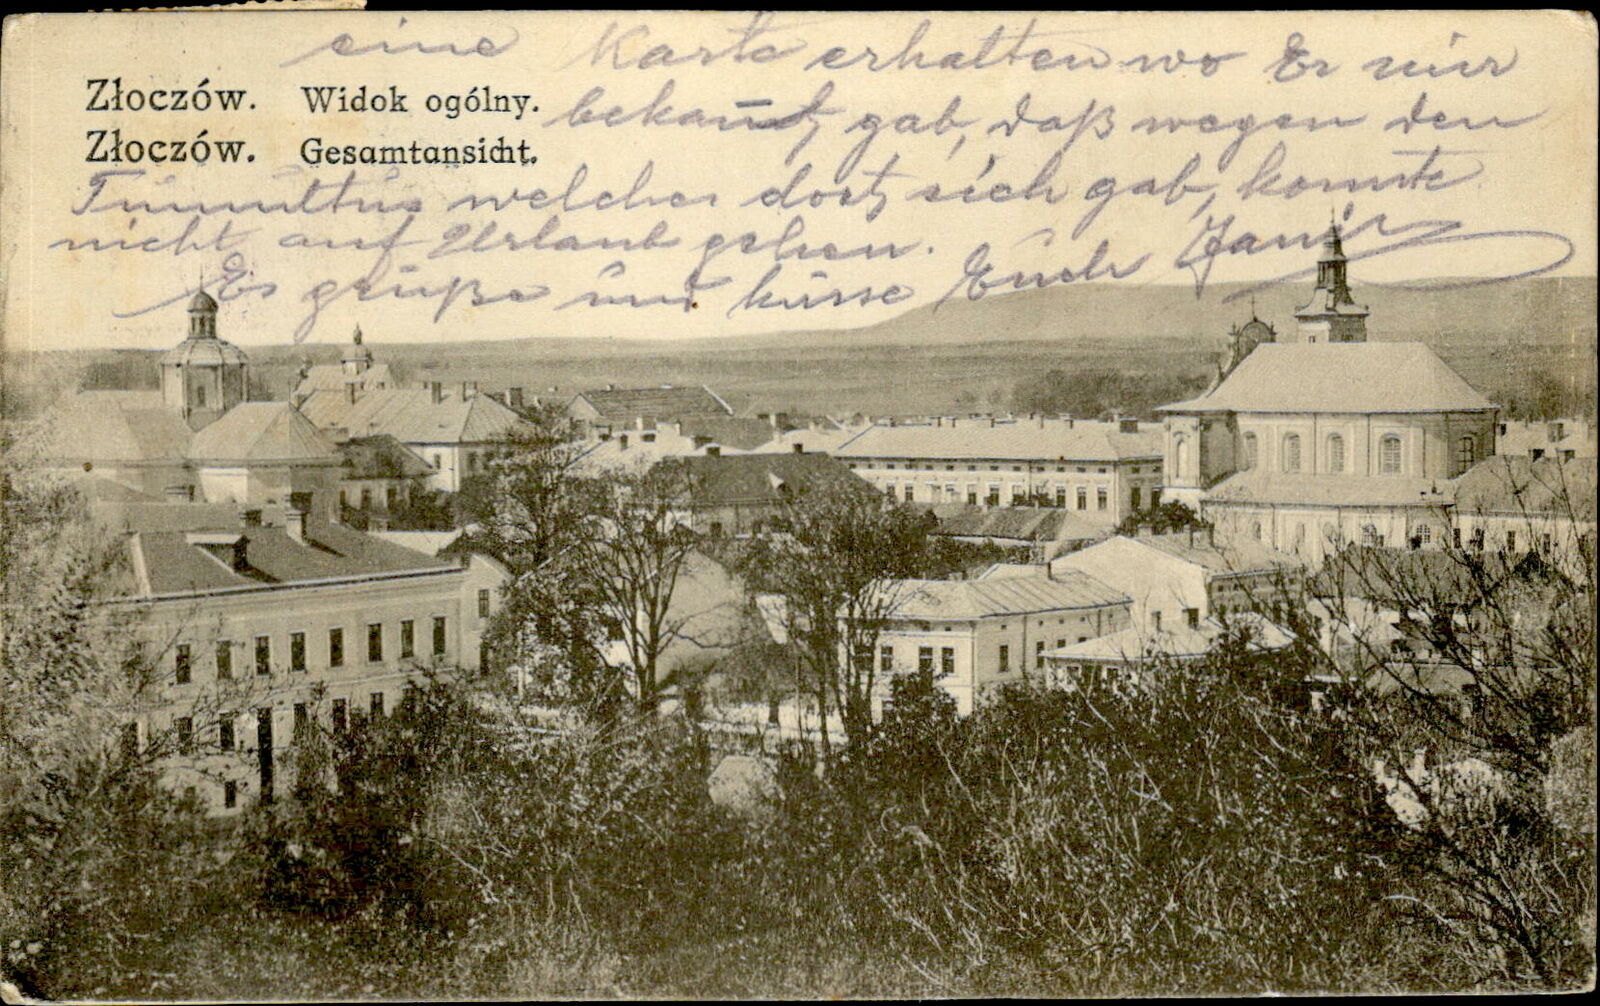 eine Karte erhalten wo Er mir
Złoczów. Widok ogólny.
bekannt gab, daß wegen den
Złoczów. Gesamtansicht.
Tumultus welcher dort sich gab, konnte
nicht auf Urlaub gehen.
Es grüßt und küsse Euch